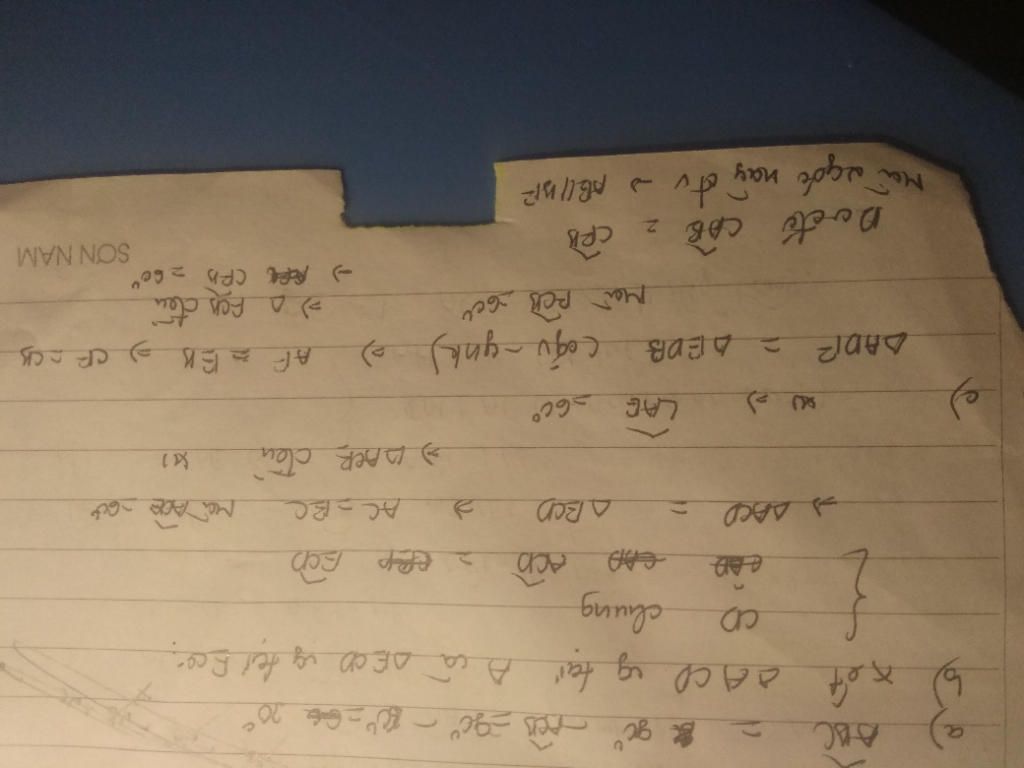 a) ABC = 90° - ACB = 90° - 60° = 30°
b) xét ΔACD vg tại A và ΔECD vg tại E có:
CD chung
ACD = ECD
=> ΔACD = ΔECD => AC = EC Mà ACB = 60°
=> ΔACE đều
c) => CAE = 60°
ΔADF = ΔEDB (cgv - gnk) => AF = EB => CF = CB
Mà FCB = 60° => Δ FCB đều
=> CFB = 60°
Do đó CAE = CFB
Mà 2 góc này đv => AE // BF
SON NAM